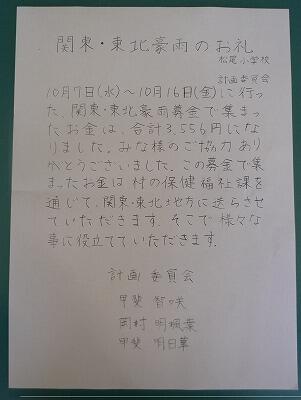 関東・東北豪雨のお礼
松尾小学校
計画委員会
10月7日(水)～10月16日(金)に行っ
た、関東・東北豪雨募金で集まっ
たお金は、合計3,556円にな
りました。みな様のご協力あり
がとうございました。この募金で集
まったお金は村の保健福祉課を
通じて、関東・東北地方に送らさせ
ていただきます。そこで様々な
事に役立てていただきます。
計画委員会
甲斐 智咲
岡村 明楓葉
甲斐 明日華